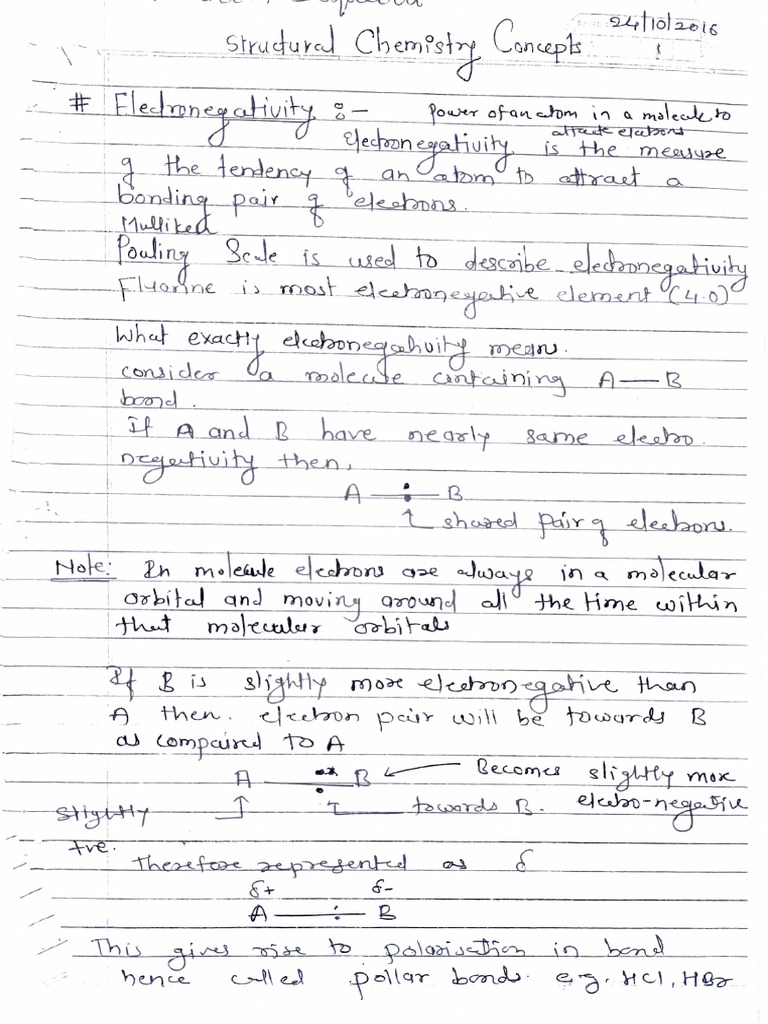 24/10/2016
Structural Chemistry Concepts
# Electronegativity :- Power of an atom in a molecule to
attract electrons
Electronegativity is the measure
of the tendency of an atom to attract a
bonding pair of electrons.
Mulliked
Pauling Scale is used to describe electronegativity
Fluorine is most electronegative element (4.0)
What exactly electronegativity means.
consider a molecule containing A—B
bond.
If A and B have nearly same electro.
negativity then,
A —:— B
↑ shared pair of electrons.
Note: In molecule electrons are always in a molecular
orbital and moving around all the time within
that molecular orbitals
If B is slightly more electronegative than
A then. electron pair will be towards B
as compaired to A
A —:— B ← Becomes slightly more
slightly towards B. electro-negative
+ve.
therefore represented as δ
δ+ δ-
A —:— B
This gives rise to polarisation in bond
hence called pollar bonds. e.g. HCl, HBr